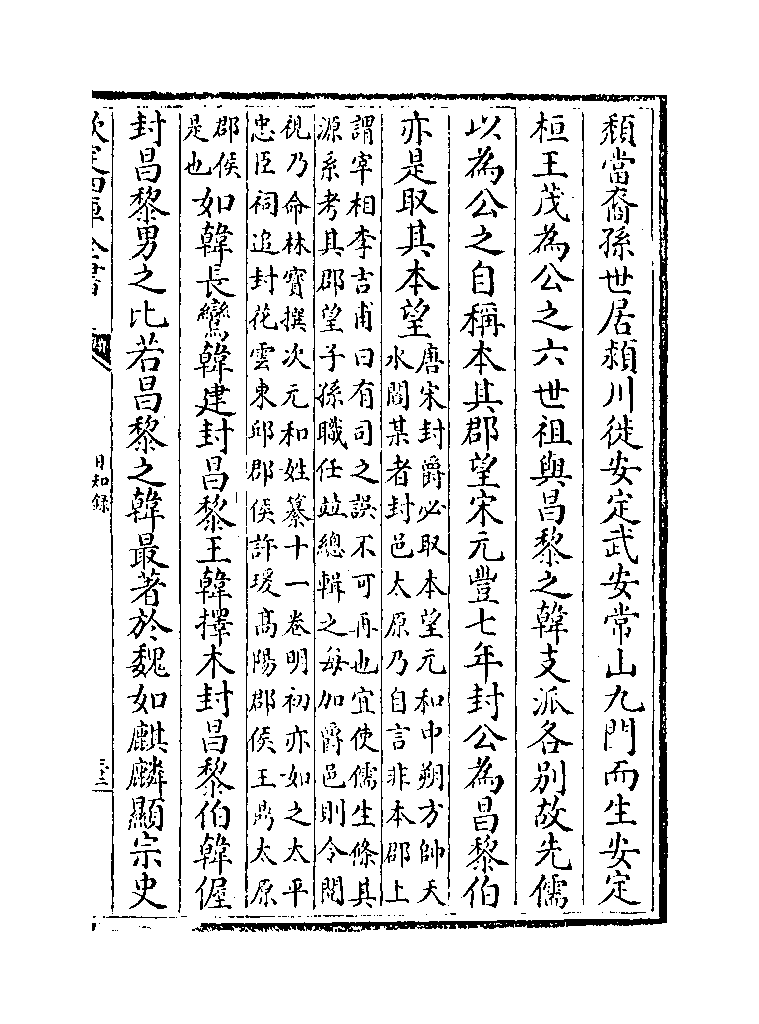 頽當裔孫世居頴川徙安定武安常山九門而生安定
桓王茂為公之六世祖與昌黎之韓支派各別故先儒
以為公之自稱本其郡望宋元豐七年封公為昌黎伯
亦是取其本望唐宋封爵必取本望元和中朔方帥天
水閻某者封邑太原乃自言非本郡上
謂宰相李吉甫曰有司之誤不可再也宜使儒生條其
源系考其郡望子孫職任竝總輯之每加爵邑則令閱
視乃命林寶撰次元和姓纂十一卷明初亦如之太平
忠臣祠追封花雲東邱郡侯許瑗高陽郡侯王鼎太原
郡侯
是也如韓長鸞韓建封昌黎王韓擇木封昌黎伯韓偓
封昌黎男之比若昌黎之韓最著於魏如麒麟顯宗史
欽定四庫全書
日知録